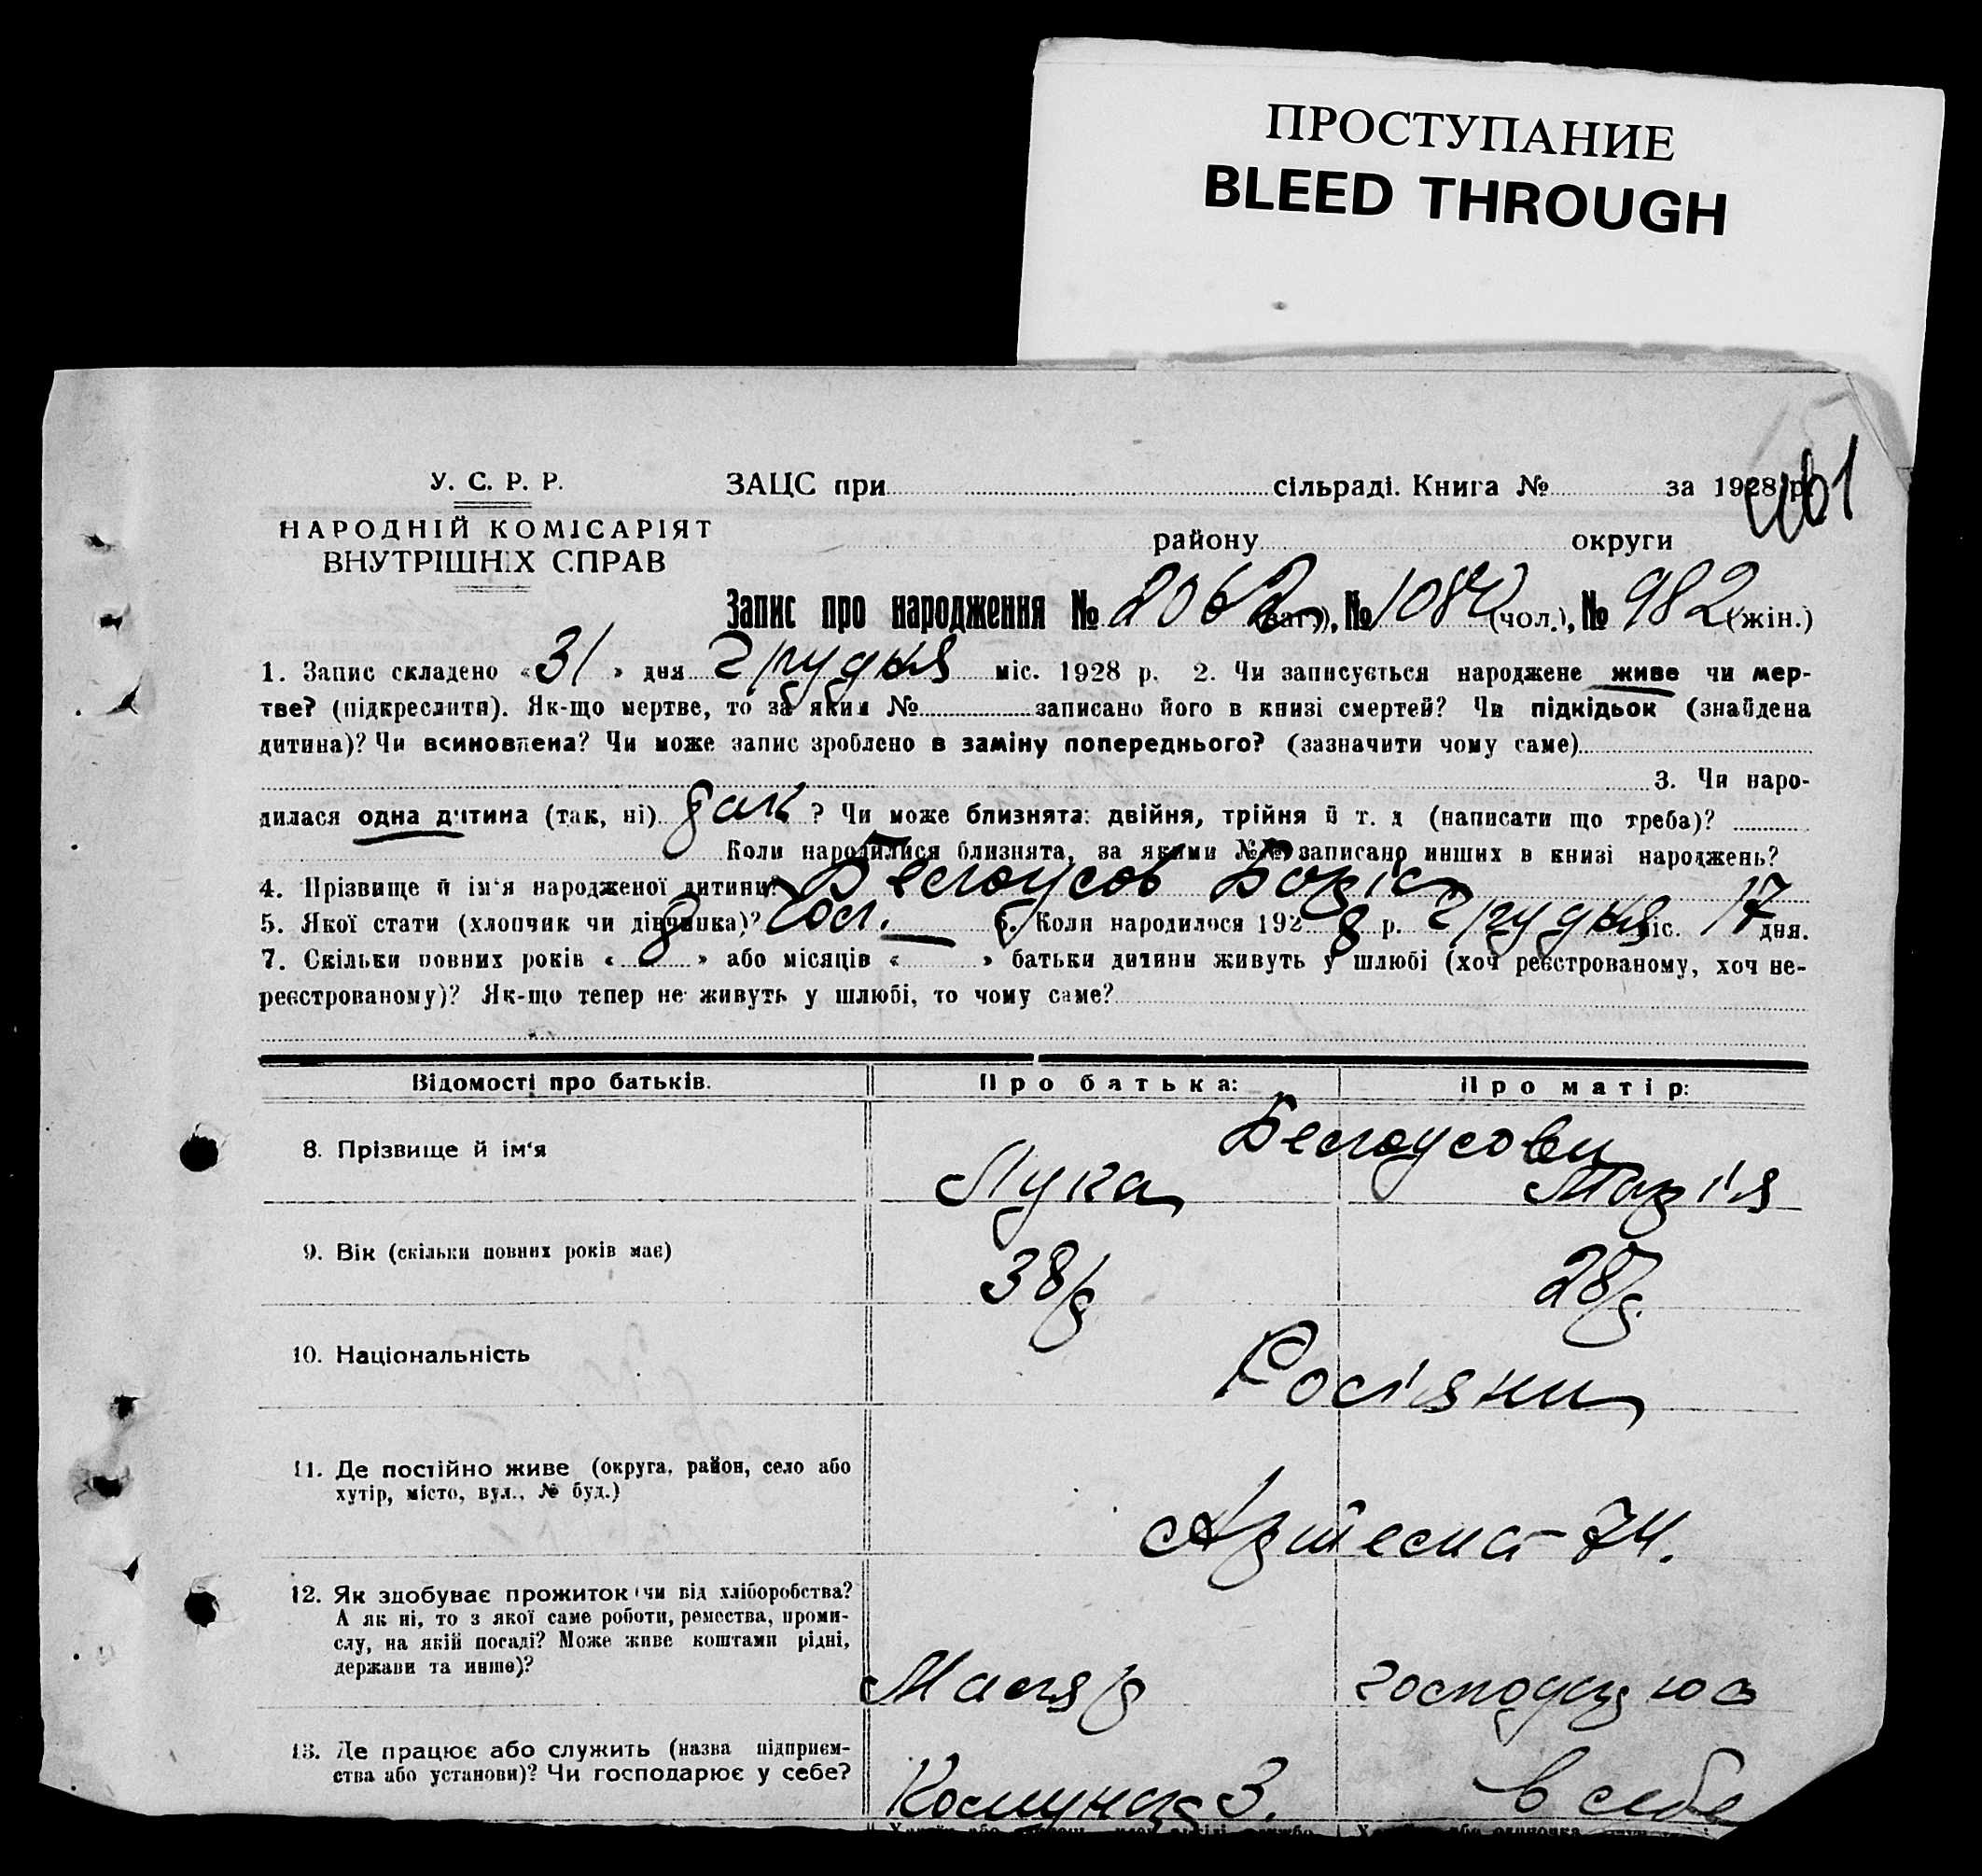 ПРОСТУПАНИЕ
BLEED THROUGH
У. С. Р. Р.
ЗАЦС при сільраді. Книга № за 1928 р.
НАРОДНІЙ КОМІСАРІЯТ
ВНУТРІШНІХ СПРАВ
району округи
Запис про народження № 2062 (заг.), № 1080 (чол.), № 982 (жін.)
1. Запис складено «31» дня грудня міс. 1928 р. 2. Чи записується народжене живе чи мер-
тве? (підкреслити). Як-що мертве, то за яким № записано його в книзі смертей? Чи підкідьок (знайдена
дитина)? Чи всиновлена? Чи може запис зроблено в заміну попереднього? (зазначити чому саме)
3. Чи наро-
дилася одна дитина (так, ні) так ? Чи може близнята: двійня, трійня й т. д (написати що треба)?
Коли народилися близнята, за якими №№ записано инших в книзі народжень?
4. Прізвище й ім'я народженої дитини? Белоусов Борис
5. Якої стати (хлопчик чи дівчинка)? чол. 6. Коли народилося 1928 р. грудня міс. 17 дня.
7. Скільки повних років «8» або місяців « » батьки дитини живуть у шлюбі (хоч реєстрованому, хоч не-
реєстрованому)? Як-що тепер не живуть у шлюбі, то чому саме?
Відомості про батьків. Про батька: Про матір:
Белоусови
8. Прізвище й ім'я Лука Марія
9. Вік (скільки повних років має) 38 р 28 р.
10. Національність Росіяни
11. Де постійно живе (округа, район, село або
хутір, місто, вул., № буд.)
Артема 74.
12. Як здобуває прожиток (чи від хліборобства?
А як ні, то з якої саме роботи, ремества, проми-
слу, на якій посаді? Може живе коштами рідні,
держави та инше)?
Маляр господарює
13. Де працює або служить (назва підприєм-
ства або установи)? Чи господарює у себе?
Комунар 3. в себе